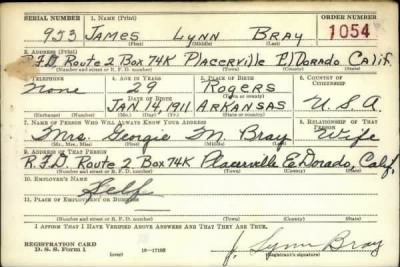 SERIAL NUMBER 1. NAME (Print) ORDER NUMBER
953 JAMES Lynn BRAY 1054
(First) (Middle) (Last)
2. ADDRESS (Print)
R.F.D. Route 2 Box 74K Placerville El Dorado Calif.
(Number and street or R. F. D. number) (Town) (County) (State)
3. TELEPHONE 4. AGE IN YEARS 5. PLACE OF BIRTH 6. COUNTRY OF CITIZENSHIP
None 29 Rogers
DATE OF BIRTH (Town or county)
JAN. 14, 1911 ARKANSAS U.S.A.
(Exchange) (Number) (Mo.) (Day) (Yr.) (State or country)
7. NAME OF PERSON WHO WILL ALWAYS KNOW YOUR ADDRESS 8. RELATIONSHIP OF THAT PERSON
Mrs. Georgie M. Bray Wife
(Mr., Mrs., Miss) (First) (Middle) (Last)
9. ADDRESS OF THAT PERSON
R.F.D. Route 2 Box 74K Placerville El Dorado, Calif.
(Number and street or R. F. D. number) (Town) (County) (State)
10. EMPLOYER'S NAME
11. PLACE OF EMPLOYMENT OR BUSINESS
(Number and street or R. F. D. number) (Town) (County) (State)
I AFFIRM THAT I HAVE VERIFIED ABOVE ANSWERS AND THAT THEY ARE TRUE.
REGISTRATION CARD
D. S. S. Form 1 (over) 16-17105 J. Lynn Bray
(Registrant's signature)